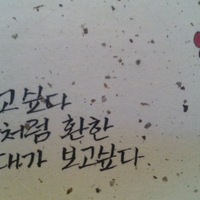 고싶다
처럼 환한
대가 보고싶다